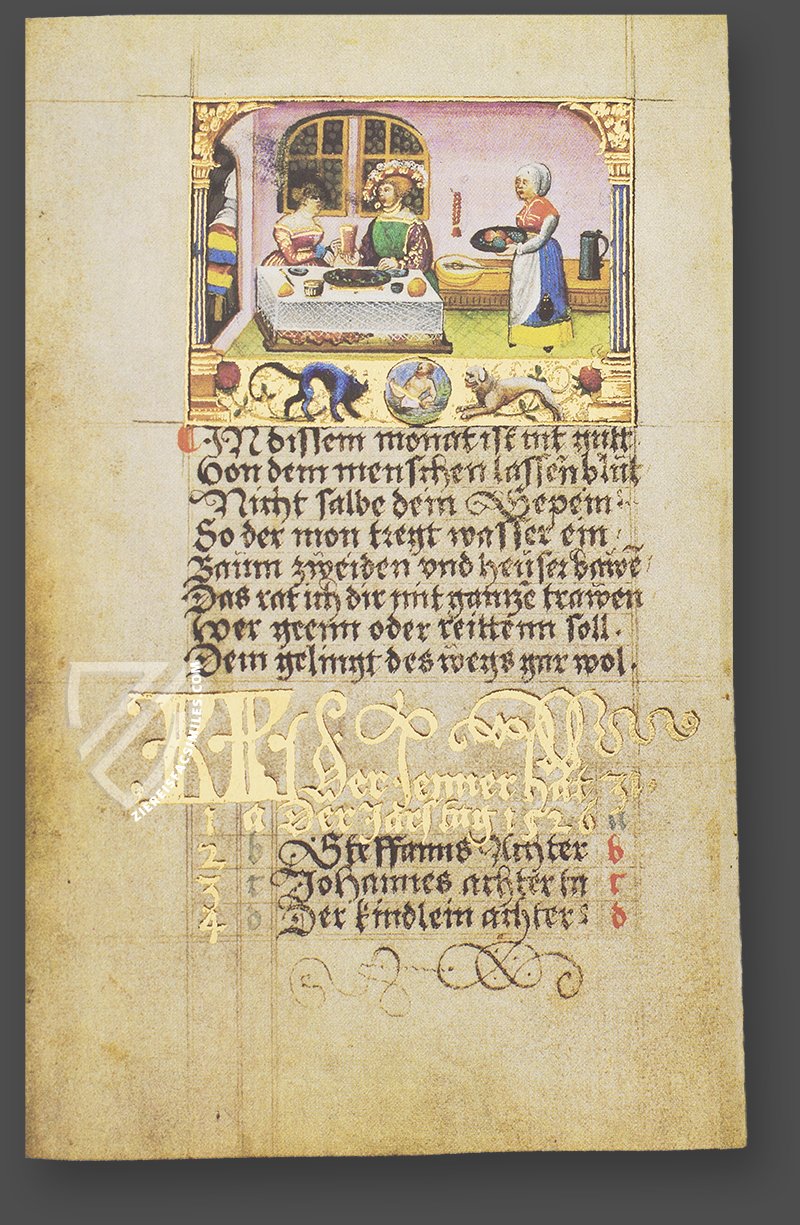 IN dissem monat ist nit gutt
Von dem menschen lassen blut
Nicht salbe dein Gepein
So der mon tregt wasser ein
Baum zweiden vnd heuser bawē
Das rat ich dir mit gantzē trawen
Wer geenn oder reittenn soll.
Dem gelingt des wegs gar wol.
KL Der Jenner hat 31
1 a Der Jars tag 1526
2 b Steffanns Achter b
3 c Johannes achter ta c
4 d Der kindlein achter d
ZIEREISFACSIMILES.COM